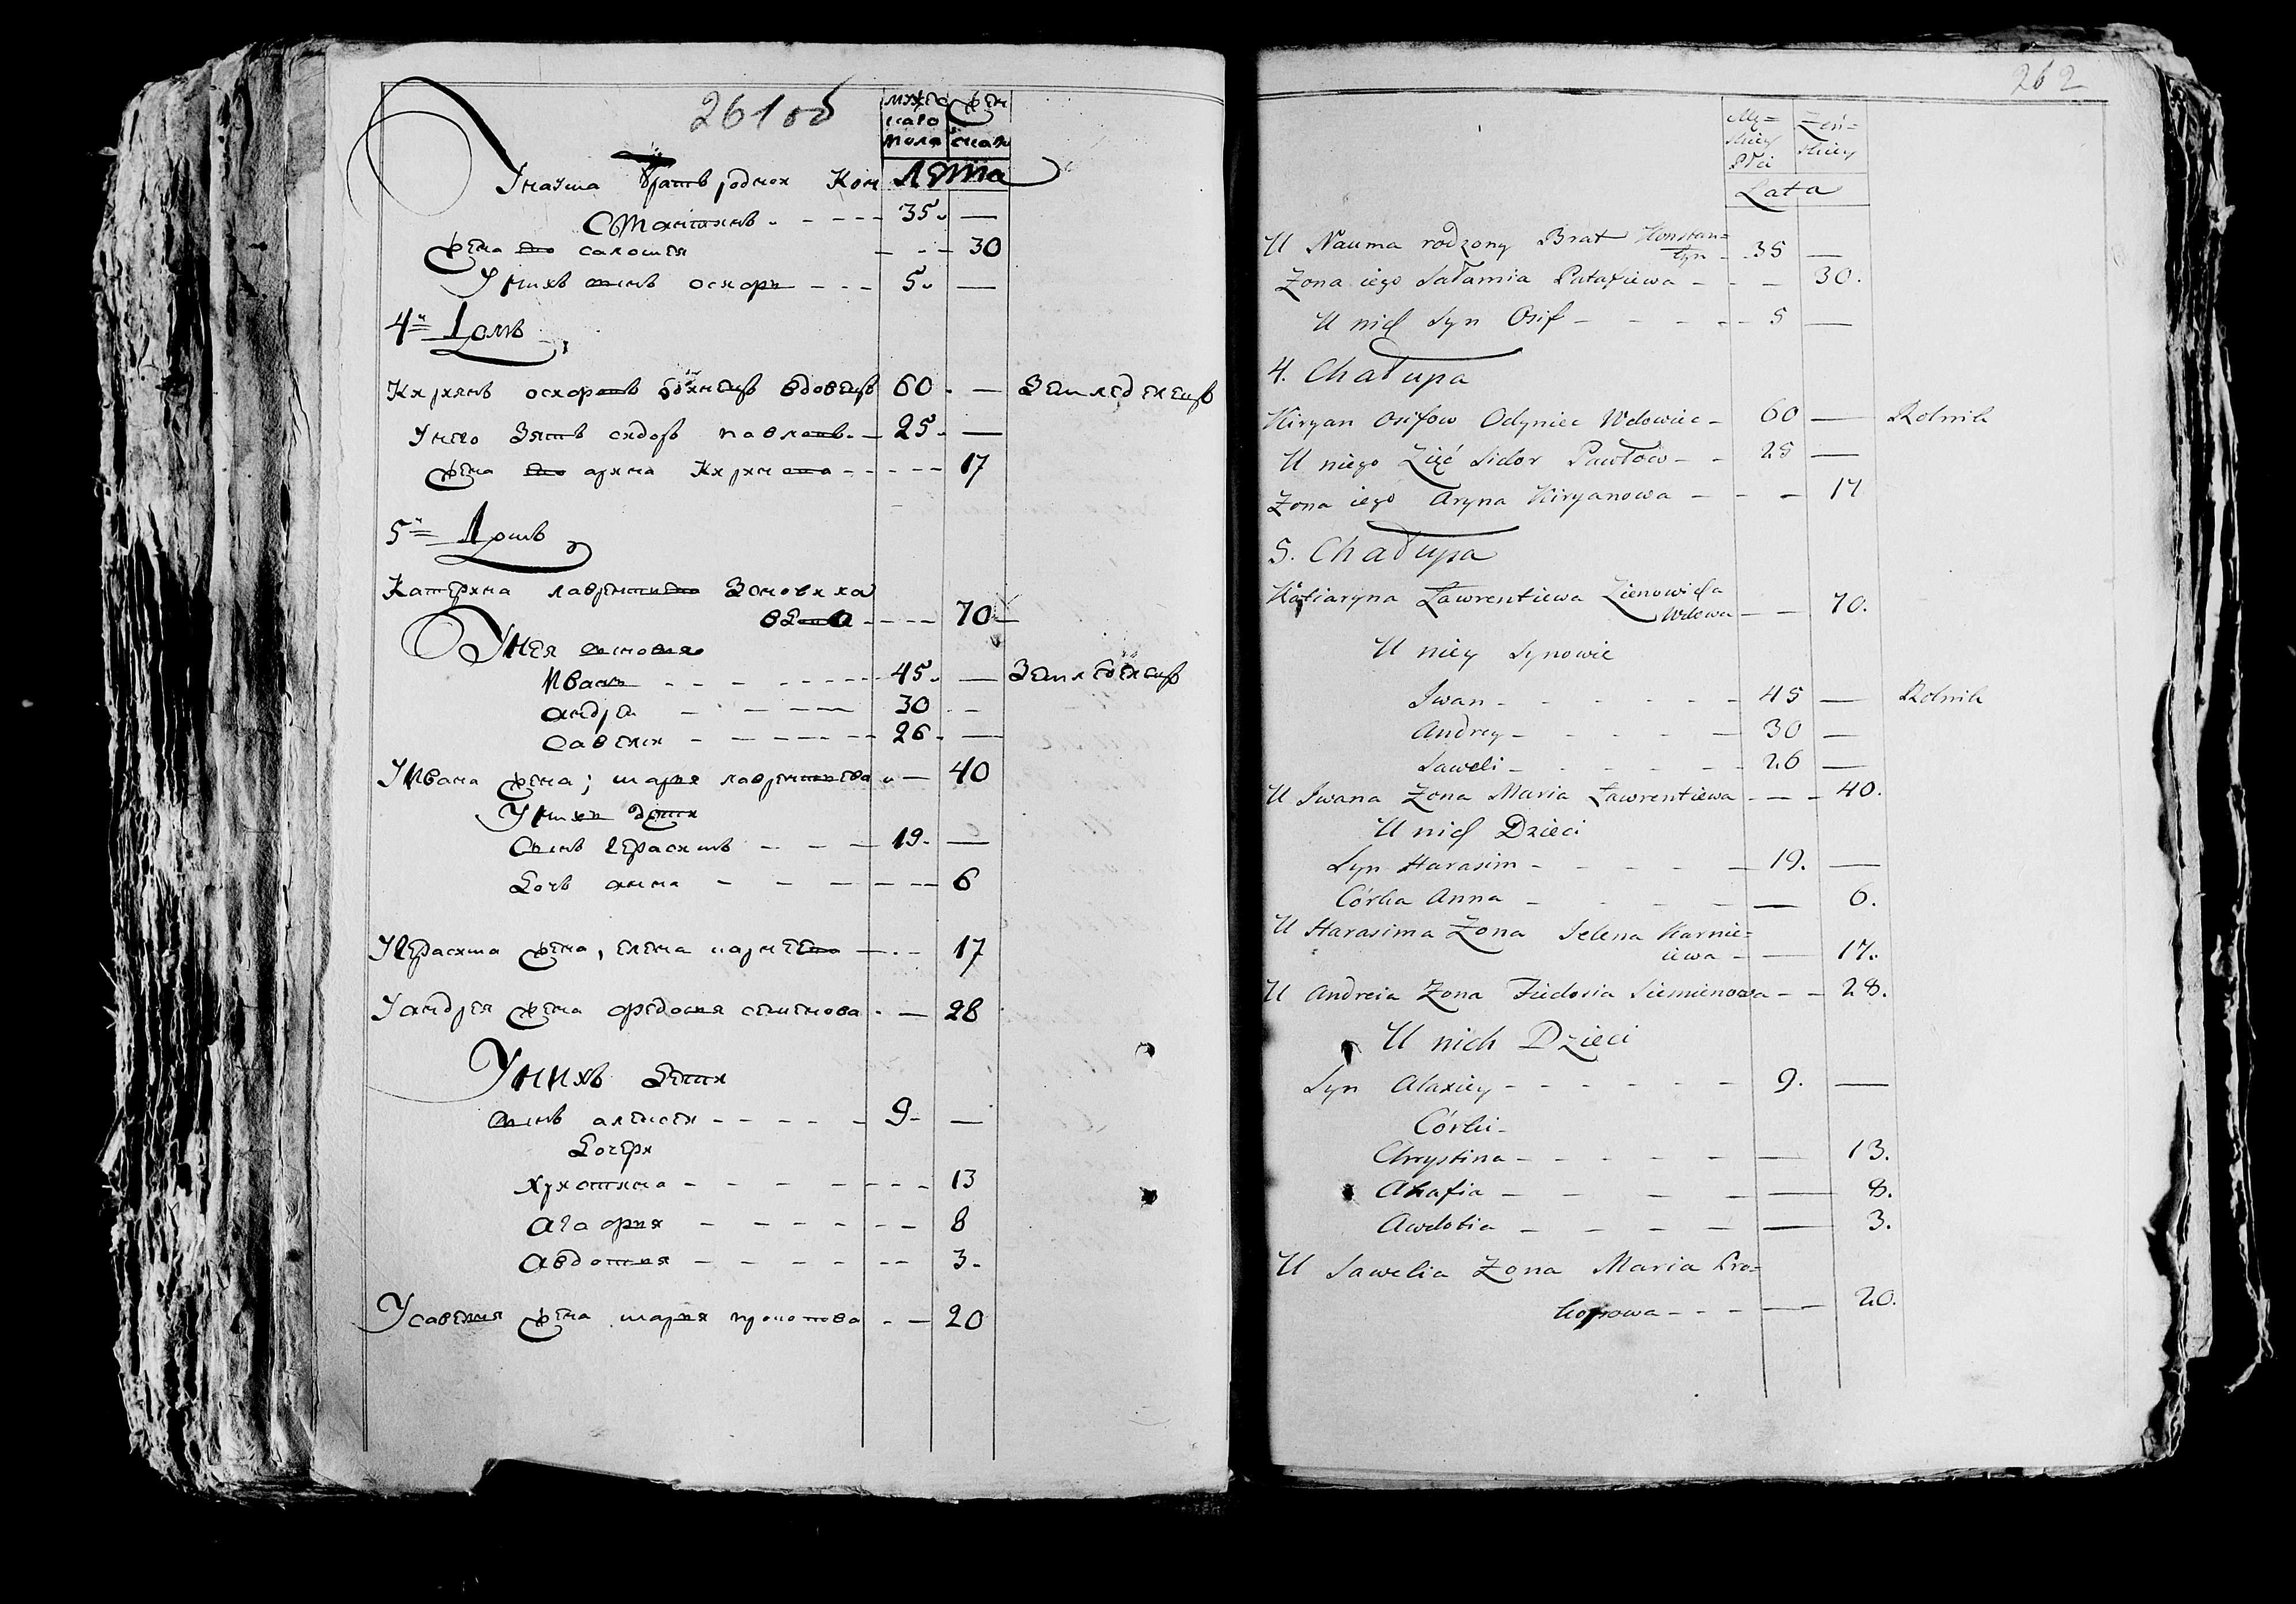 261об
мужеска пола
женска
Лета
У наума братъ родной Кон
стантинъ - - - - 35. —
жена его саломея - - - 30
У нихъ сынъ осифъ - - - 5. —
4й Домъ
Кирянъ осифовъ вдовецъ 60. — Земледелецъ
У него Зять сидоръ павловъ - — 25. —
жена его арина Кирянова - - - - - 17
5й Домъ
Катерина лаврентиева Зеновиха
вдова - - - - 70 —
У нея сыновья
Иванъ - - - - - - - - 45. — Земледелецъ
андрей - - - - - 30 - -
савелей - - - - - - - 26. —
У Ивана жена; мария лаврентиева - — 40
У нихъ дети
сынъ герасимъ - - - 19. —
Дочь анна - - - - - - 6
У герасима жена, елена карнеева — - - 17
У андрея жена федосия семенова - — 28
У нихъ Дети
сынъ алексей - - - - - 9- —
Дочери
христина - - - - - - - 13
агафия - - - - - - 8
авдотия - - - - - - 3.
У савелия жена мария прокопова - — 20
262
Mę=
skiey
Płci
Żeń=
skiey
Lata
U Nauma rodzony Brat Konstan=
tyn - - 35 —
Zona iego Sałamia Patapiewa - - — 30.
U nich Syn Osif - - - - - 5 —
4. Chałupa
Kiryan Osifow Odyniec Wdowiec - 60 — Rolnik
U niego Zięć Sidor Pawłow - - 25 —
Zona iego Aryna Kiryanowa - - — 17
5. Chałupa
Katiaryna Ławrentiewa Zienowicha
Wdowa — — 70.
U niey Synowie
Iwan - - - - - - 45 — Rolnik
Andrey - - - - — 30 —
Saweli - - - - - - 26 —
U Iwana Zona Maria Ławrentiewa - — - 40.
U nich Dzieci
Syn Harasim - - - - — 19. —
Córka Anna - - - — — 6.
U Harasima Zona Jelena Karnie=
iewa - — 17.
U Andreia Zona Fiedosia Siemienowa - - 28.
U nich Dzieci
Syn Alaxiey - - - - - - 9. —
Córki -
Chrystina - - - - - — 13.
Ahafia - - - - — 8.
Awdotia - - - - — 3.
U Sawelia Zona Maria Pro=
kopowa - - - — 20.